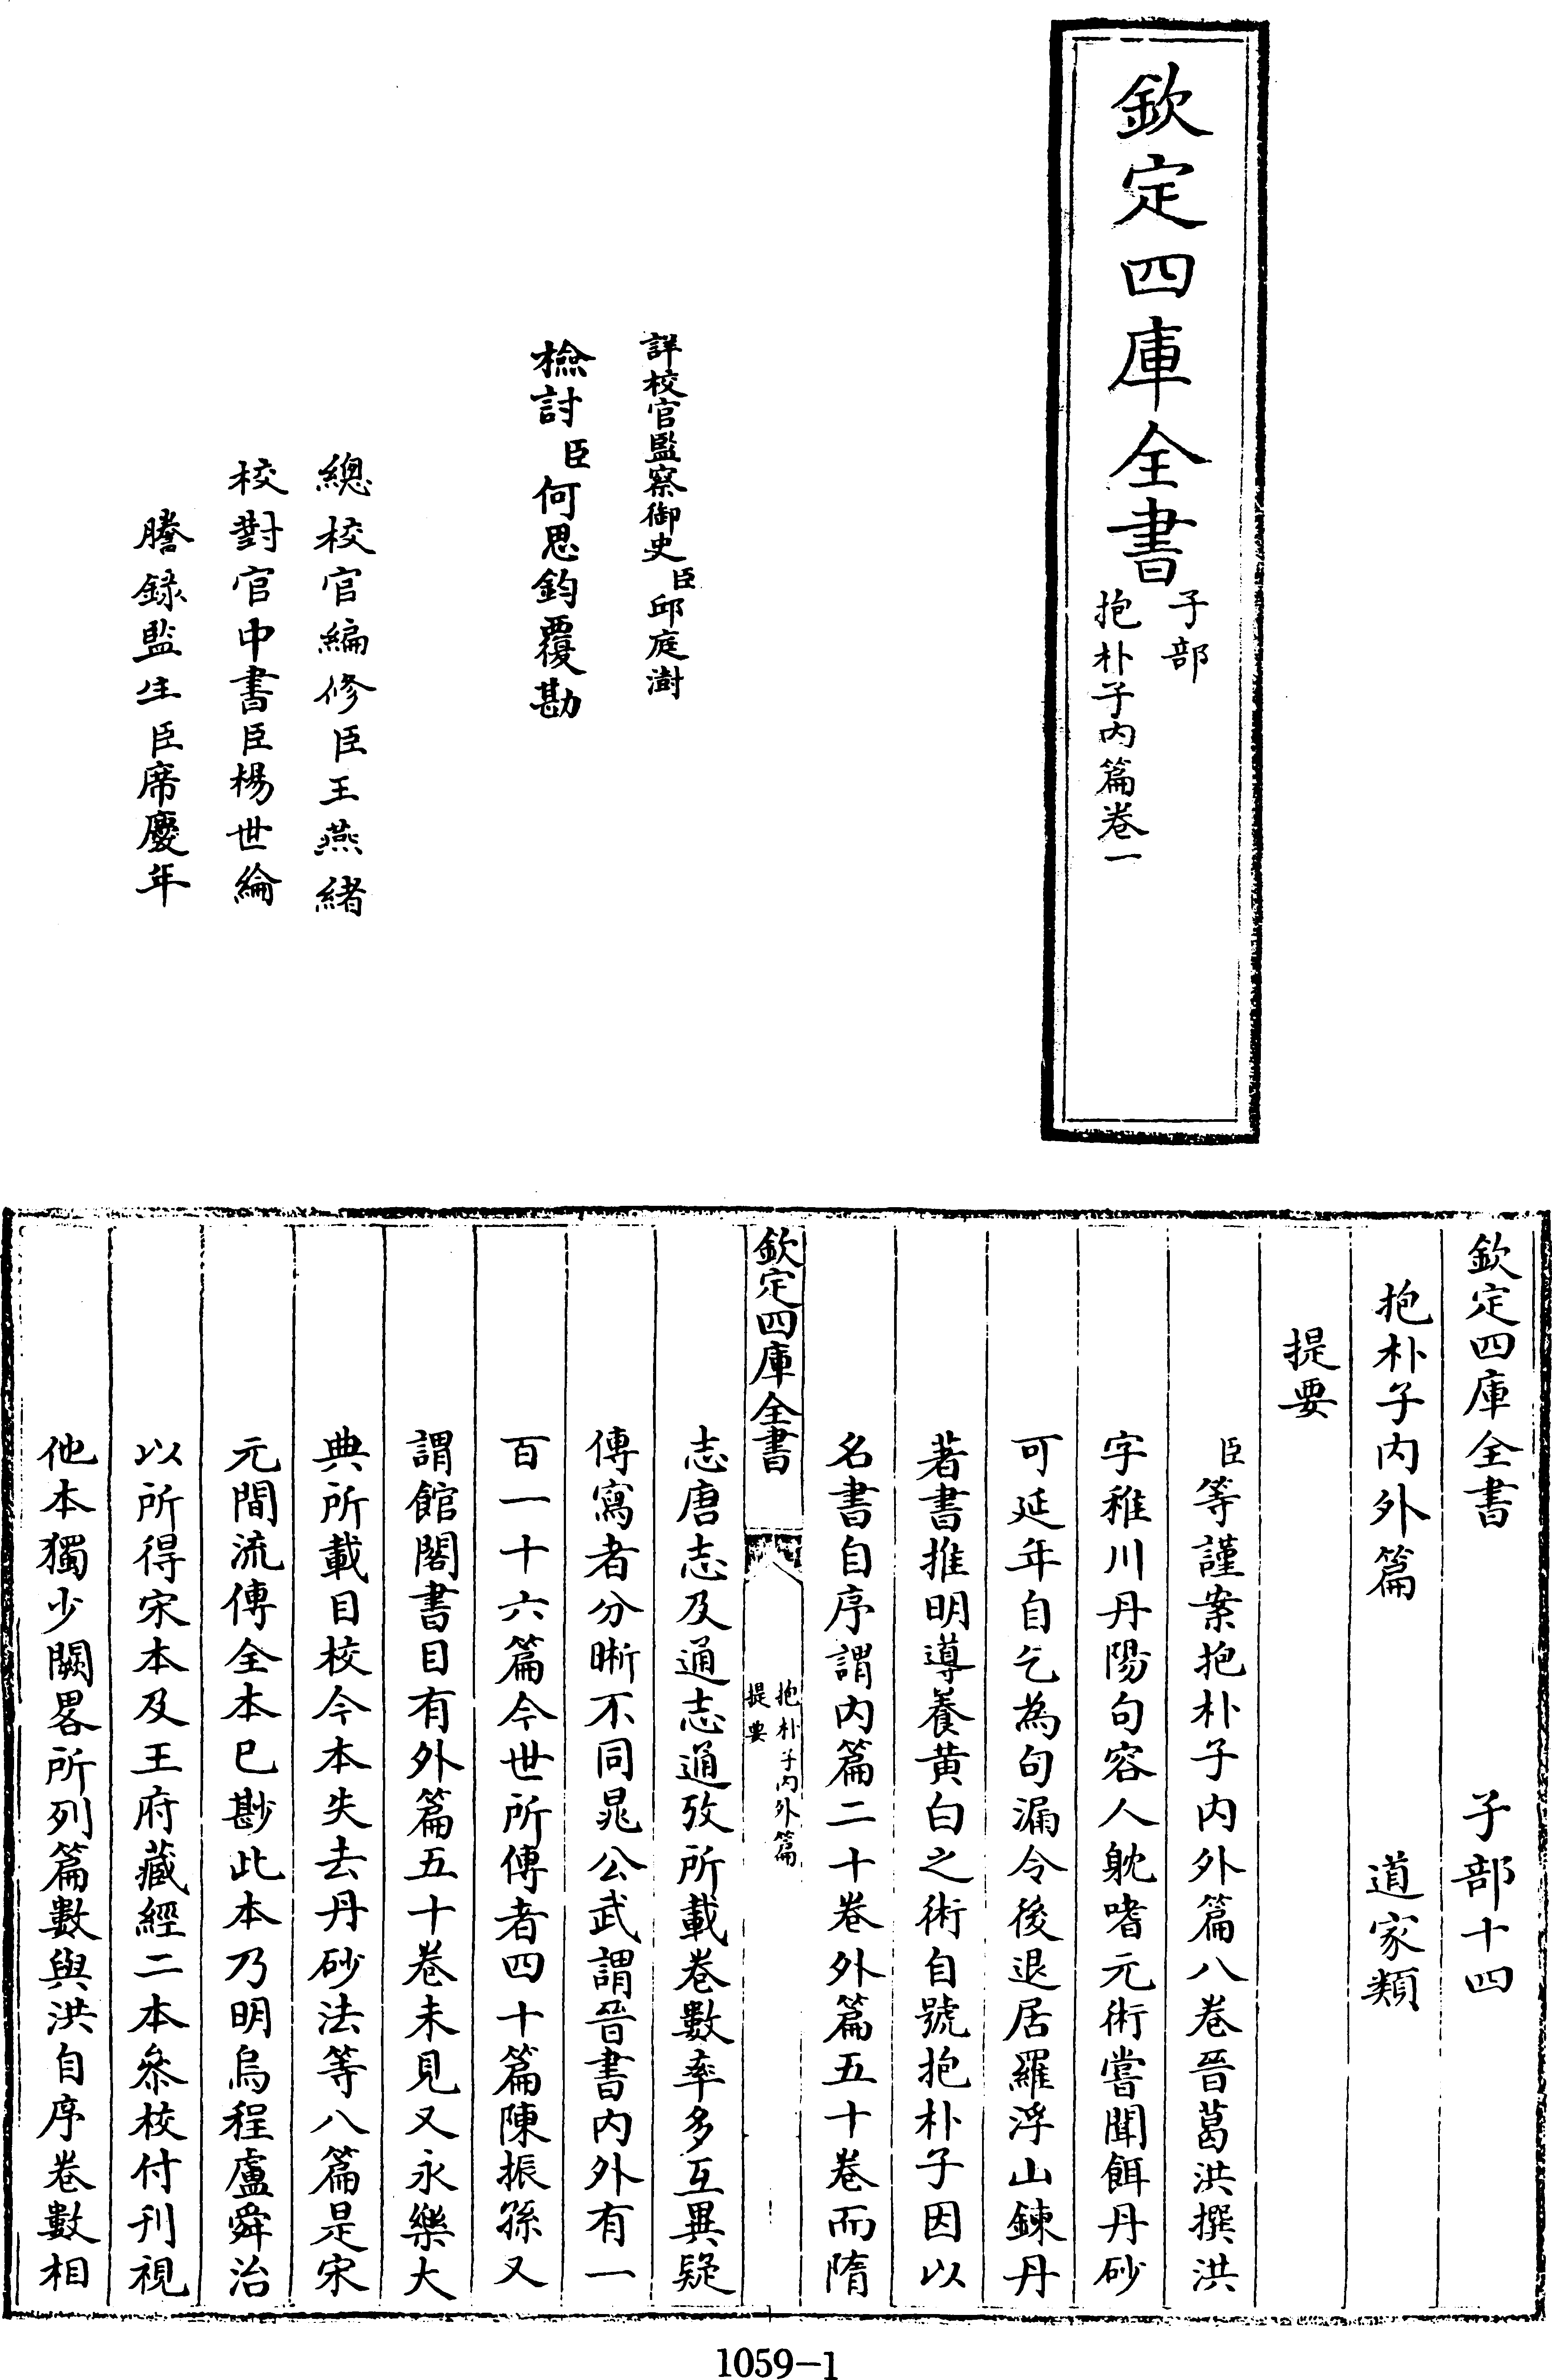 欽定四庫全書
子部
抱朴子內篇卷一
詳校官監察御史臣邱庭澍
檢討臣何思鈞覆勘
總校官編修臣王燕緒
校對官中書臣楊世綸
謄錄監生臣席慶年
欽定四庫全書 子部十四
抱朴子內外篇 道家類
提要
臣等謹案抱朴子內外篇八卷晉葛洪撰洪
字稚川丹陽句容人躭嗜元術嘗聞餌丹砂
可延年自乞為句漏令後退居羅浮山鍊丹
著書推明導養黄白之術自號抱朴子因以
名書自序謂內篇二十卷外篇五十卷而隋
欽定四庫全書
抱朴子內外篇
提要
志唐志及通志通攷所載卷數率多互異疑
傳寫者分晰不同晁公武謂晉書內外有一
百一十六篇今世所傳者四十篇陳振孫又
謂館閣書目有外篇五十卷未見又永樂大
典所載目校今本失去丹砂法等八篇是宋
元間流傳全本已尠此本乃明烏程盧舜治
以所得宋本及王府藏經二本叅校付刊視
他本獨少闕畧所列篇數與洪自序卷數相
1059-1